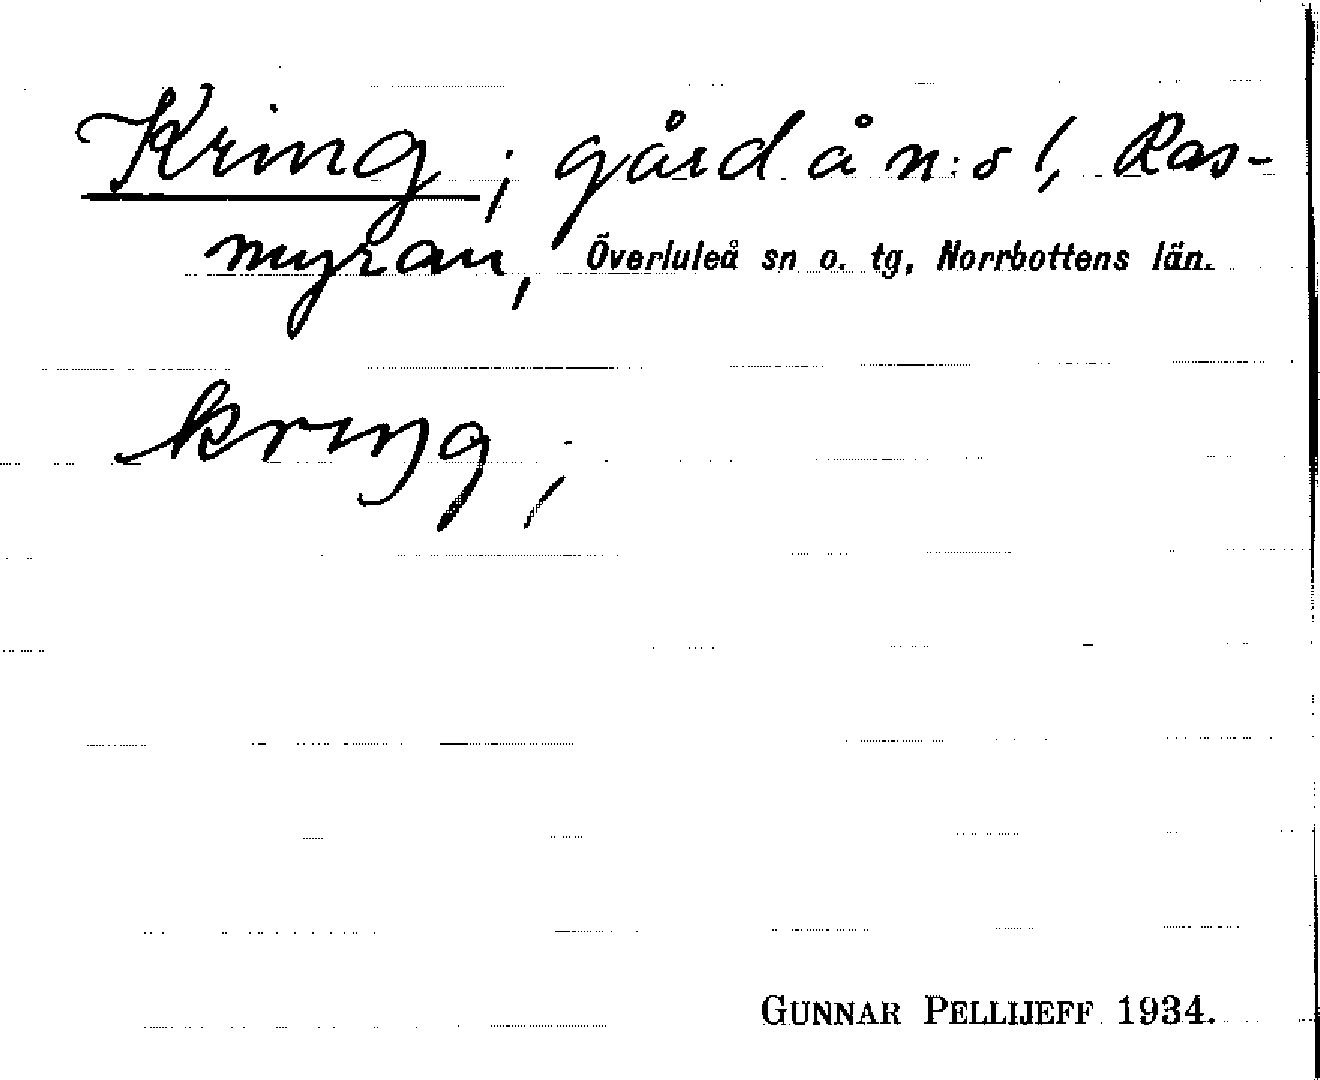 Kring; gård å n:o 1, Ras-
myran, Överluleå sn o. tg, Norrbottens län.
kriŋg;
GUNNAR PELLIJEFF 1934.